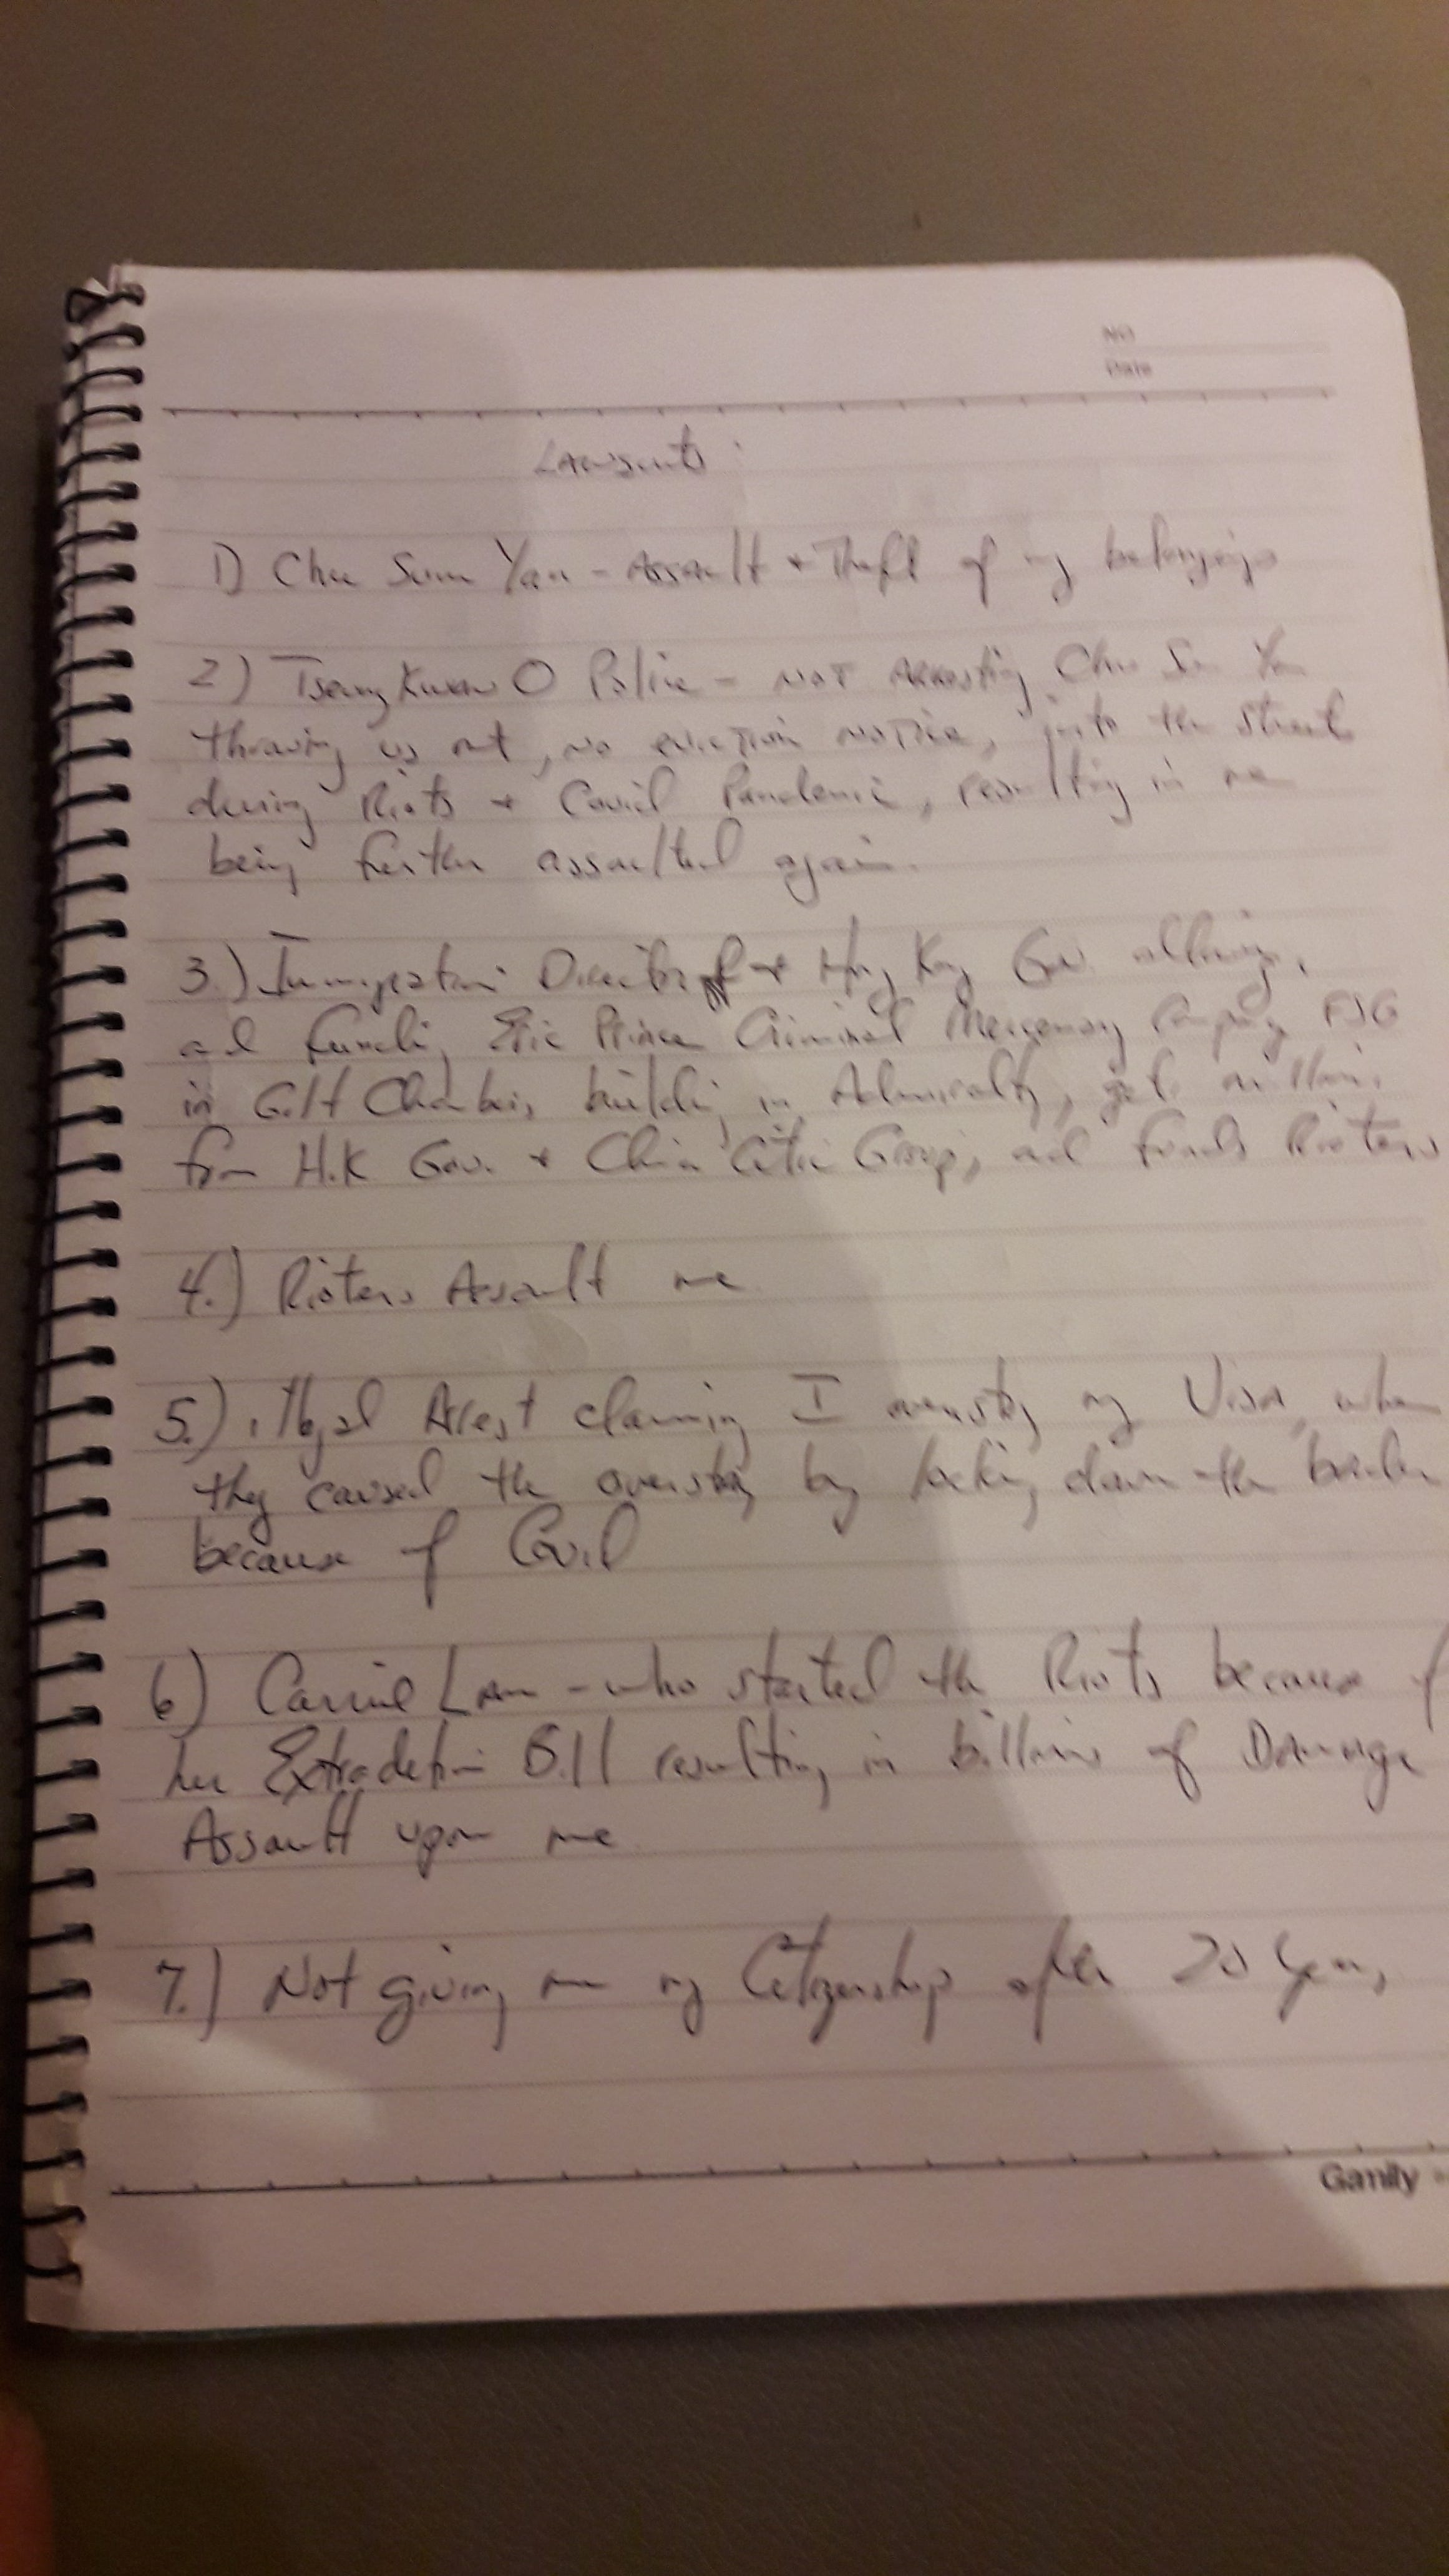 NO
Date
Lawsuits:
1) Chu Sum Yan - Assault + Theft of my belongings
2) Tseung Kwan O Police - NOT Arresting Chu Sum Yan
throwing us out, no eviction notice, into the street
during Riots + Covid Pandemic, resulting in me
being further assaulted again.
3.) Immigration Director + Hong Kong Gov. allowing,
and funding Eric Prince Criminal Mercenary Company FSG
in building in Admiralty, gets millions
from H.K Gov. + China Citic Group, and funds Rioters
4.) Rioters Assault me
5.) illegal Arrest claiming I overstay my Visa, when
they caused the overstay by locking down the border
because of Covid
6) Carrie Lam - who started the Riots because of
her Extradetion Bill resulting in billions of Damage
Assault upon me
7.) Not giving me my Citizenship after 20 years
Gamily